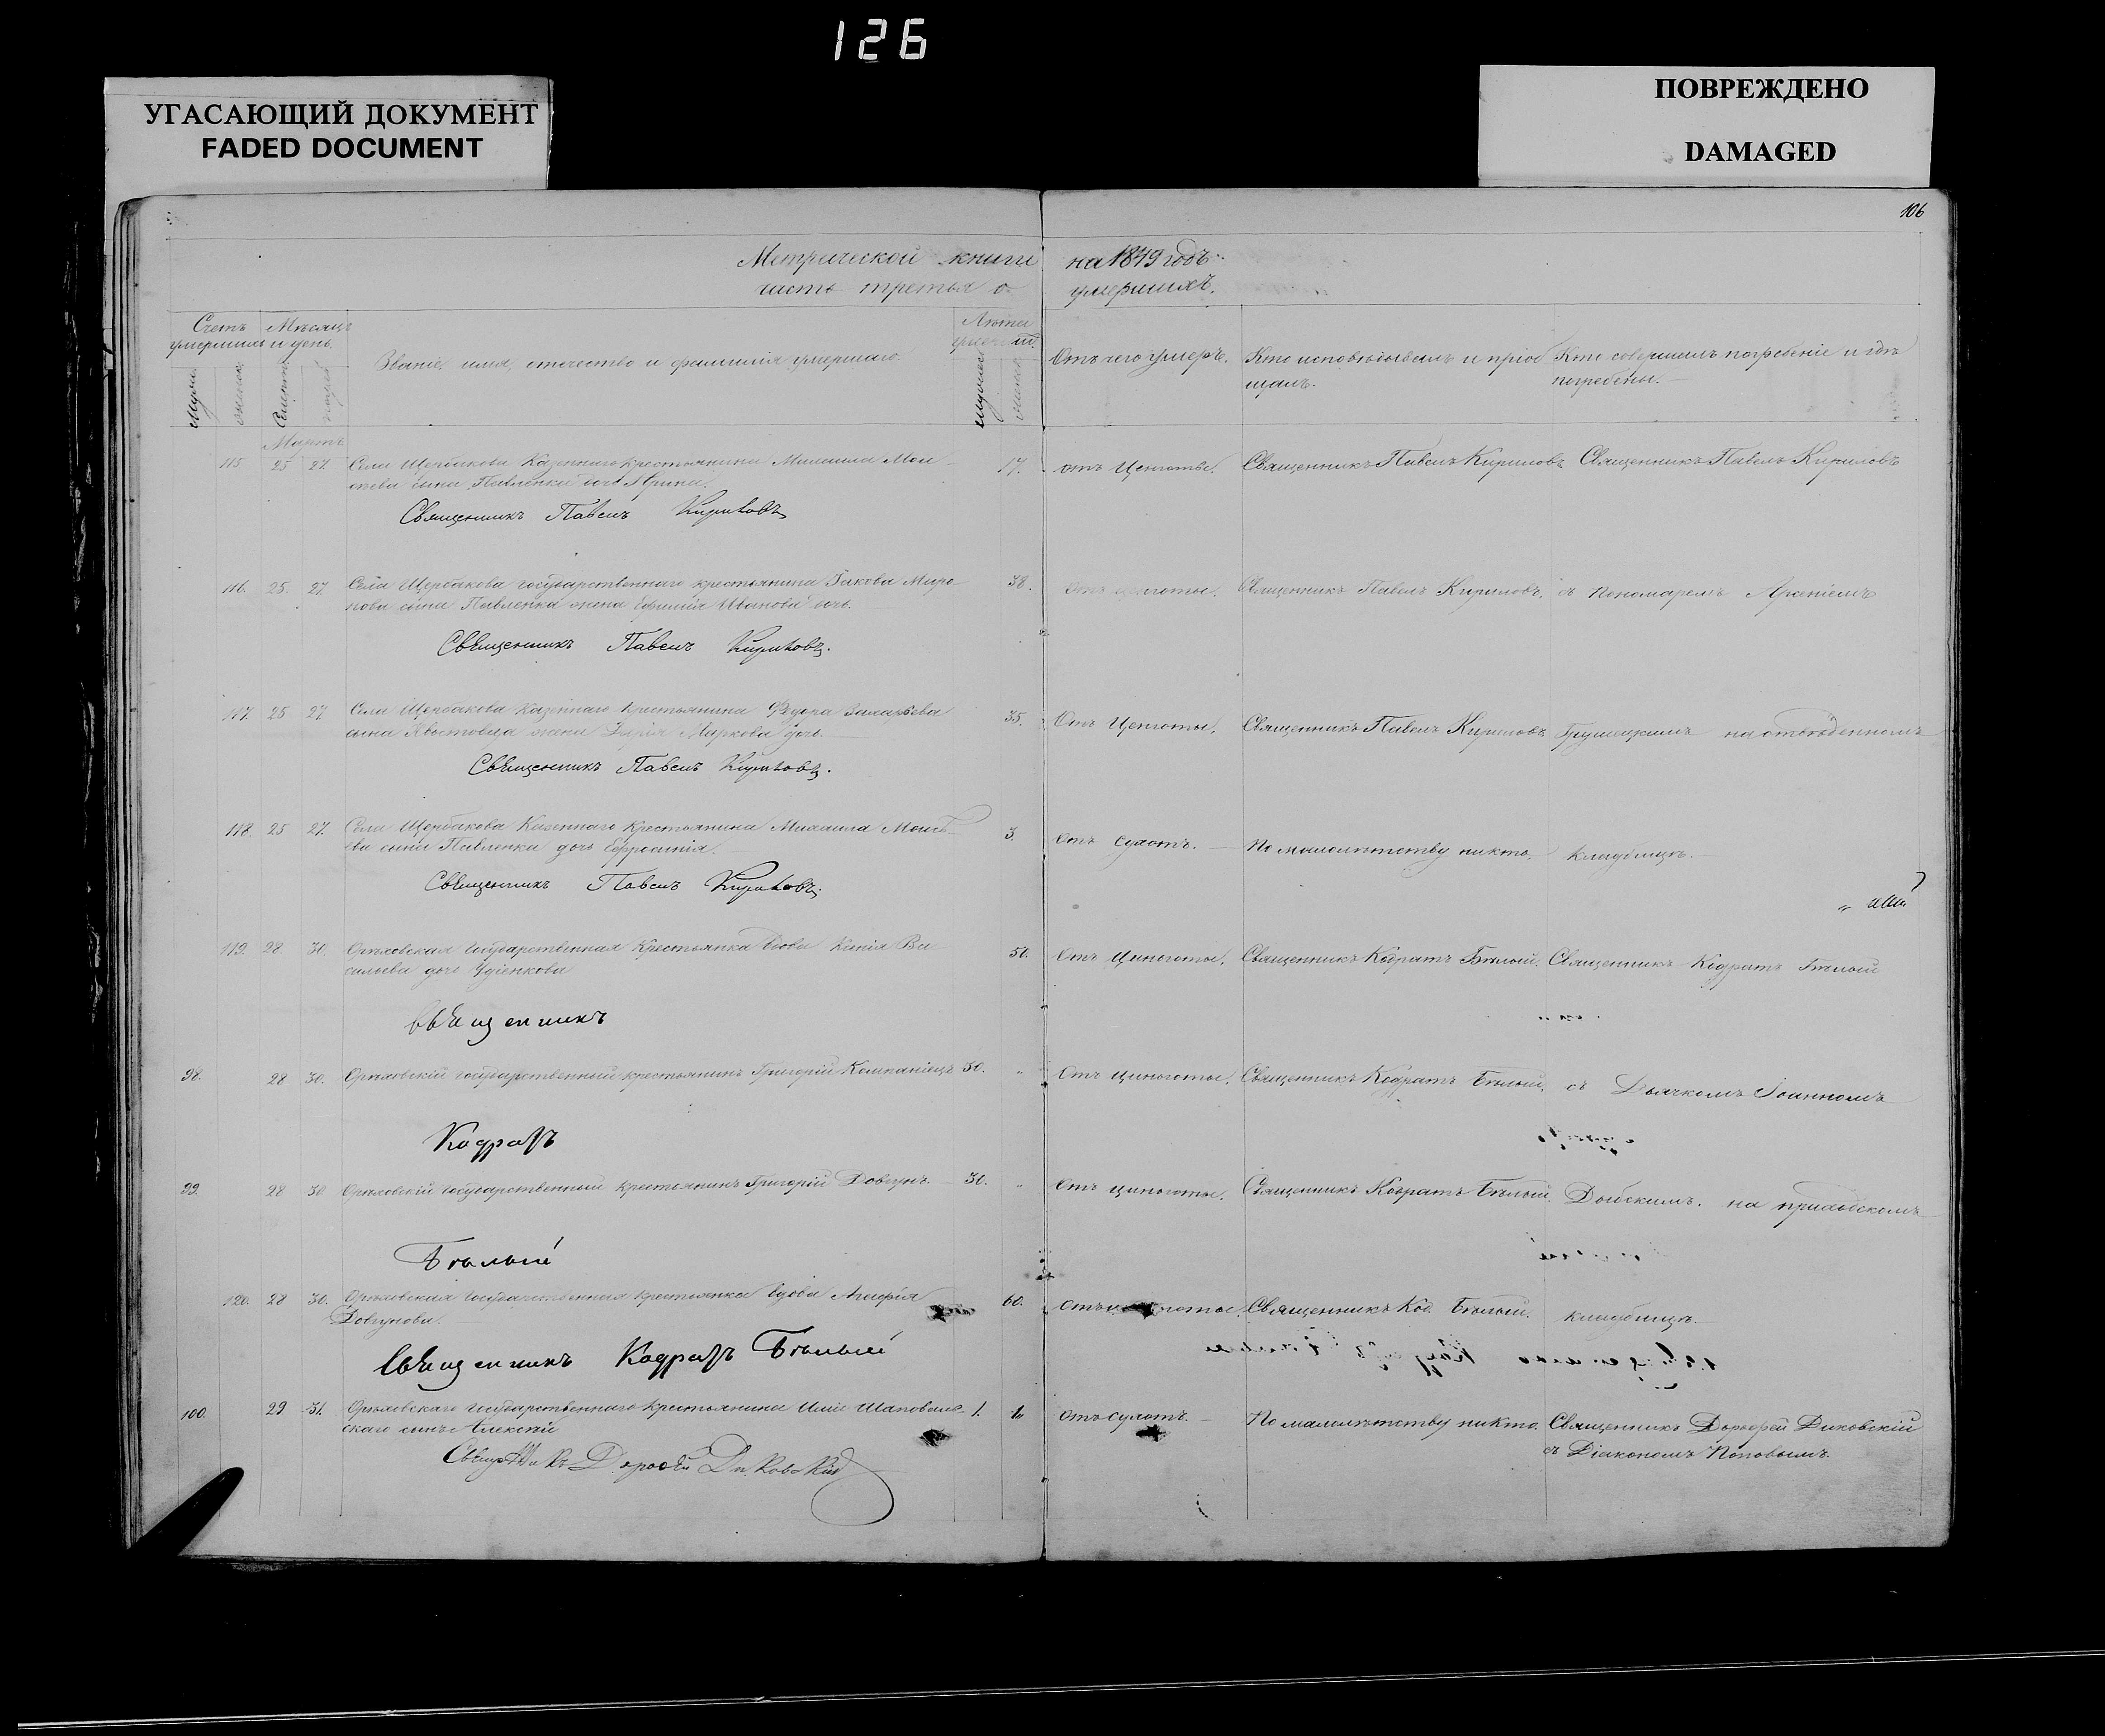 126
УГАСАЮЩИЙ ДОКУМЕНТ
FADED DOCUMENT
ПОВРЕЖДЕНО
DAMAGED
106
Метрической книги на 1849 годъ.
часть третья о умершихъ.
Счетъ умершихъ
Мѣсяцъ и день.
Званіе, имя, отечество и фамилія умершаго.
Лѣта умершаго
Отъ чего умеръ.
Кто исповѣдывалъ и пріобщалъ.
Кто совершилъ погребеніе и гдѣ погребены.
Мартъ
115 25 27. Села Щербакова Казеннаго крестьянина Михаила Мои- 17. отъ Ценготы. Священникъ Павелъ Кириловъ Священникъ Павелъ Кириловъ
сеева сына Павленка дочь Ирина.
Священникъ Павелъ Кириловъ
116. 25. 27. Села Щербакова государственнаго крестьянина Іакова Миро- 38. Отъ ценготы. Священникъ Павелъ Кириловъ. съ Пономаремъ Арсеніемъ
нова сына Павленка жена Евфимія Иванова дочь.
Священникъ Павелъ Кириловъ.
117. 25 27 Села Щербакова казеннаго крестьянина Федора Захарьева 35. Отъ Ценготы. Священникъ Павелъ Кириловъ Грушецкимъ на отвѣденномъ
сына жена Маркова дочь.
Священникъ Павелъ Кириловъ.
118. 25 27. Села Щербакова Казеннаго крестьянина Михаила Моисѣ- 3. Отъ сухотъ. По малолѣтству никто. кладбищѣ.
ева сына Павленка дочь Ефросинія.
Священникъ Павелъ Кириловъ.
119. 28. 30. Орѣховская государственная крестьянка вдова Ксенія Ва- 50. Отъ Цинготы. Священникъ Кодратъ Бѣлый. Священникъ Кодратъ Бѣлый
сильева дочь
Священникъ
98. 28 30. Орѣховскій государственный крестьянинъ Григорій Компаніецъ 50. Отъ цинготы. Священникъ Кодратъ Бѣлый. съ Дьячкомъ Іоанномъ
Кодратъ
99. 28 30 Орѣховскій государственный крестьянинъ Григорій Довгунъ 30. Отъ цинготы. Священникъ Кодратъ Бѣлый. на приходскомъ
Бѣлый
120. 28 30. Орѣховская государственная крестьянка вдова Агафія 60. Священникъ Код. Бѣлый. кладбищѣ.
Довгунова.
Священникъ Кодратъ Бѣлый
100. 29 31. Орѣховскаго государственнаго крестьянина Иліи Шаповаль- 1. Отъ сухотъ. По малолѣтству никто. Священникъ Дороѳей Диковскій
скаго сынъ Алексѣй съ Діакономъ Поповымъ.
Священникъ Дороѳей Диковскій